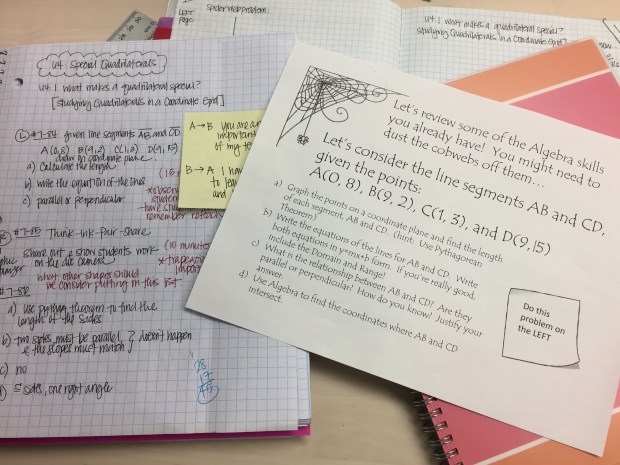 U4 Special Quadrilaterals
U4.1 What makes a quadrilateral special?
[studying Quadrilaterals in a Coordinate Grid]
given line segments AB and CD
A(0,8) B(9,2) C(1,3) D(9,15)
draw on coordinate plane.
a) Calculate the length
b) write the equation of the lines
c) parallel or perpendicular
#7-115 Think-Ink-Pair-Share
share out & show students work (10 minutes
on the doc camera
what other shapes should
we consider putting on this list
a) use pythag theorem to find the
length of the sides
b) two sides must be parallel,
& the slopes must match
doesn't happen
c) no
sides, one right angle
A → B you are an
important
of my te
B → A I ha
to lea
an
LEFT
page
spiderweb problem:
U4.1 What makes a quadrilateral special?
studying Quadrilaterals in a Coordinate Grid
Let's review some of the Algebra skills
you already have! You might need to
dust the cobwebs off them...
Let's consider the line segments AB and CD,
given the points:
A(0, 8), B(9, 2), C(1, 3), and D(9,15)
a) Graph the points on a coordinate plane and find the length
of each segment, AB and CD. (hint: Use Pythagorean
Theorem)
b) Write the equations of the lines for AB and CD. Write
both equations in y=mx+b form. If you're really good,
include the Domain and Range!
c) What is the relationship between AB and CD? Are they
parallel or perpendicular? How do you know? Justify your
answer.
d) Use Algebra to find the coordinates where AB and CD
intersect.
Do this
problem on
the LEFT